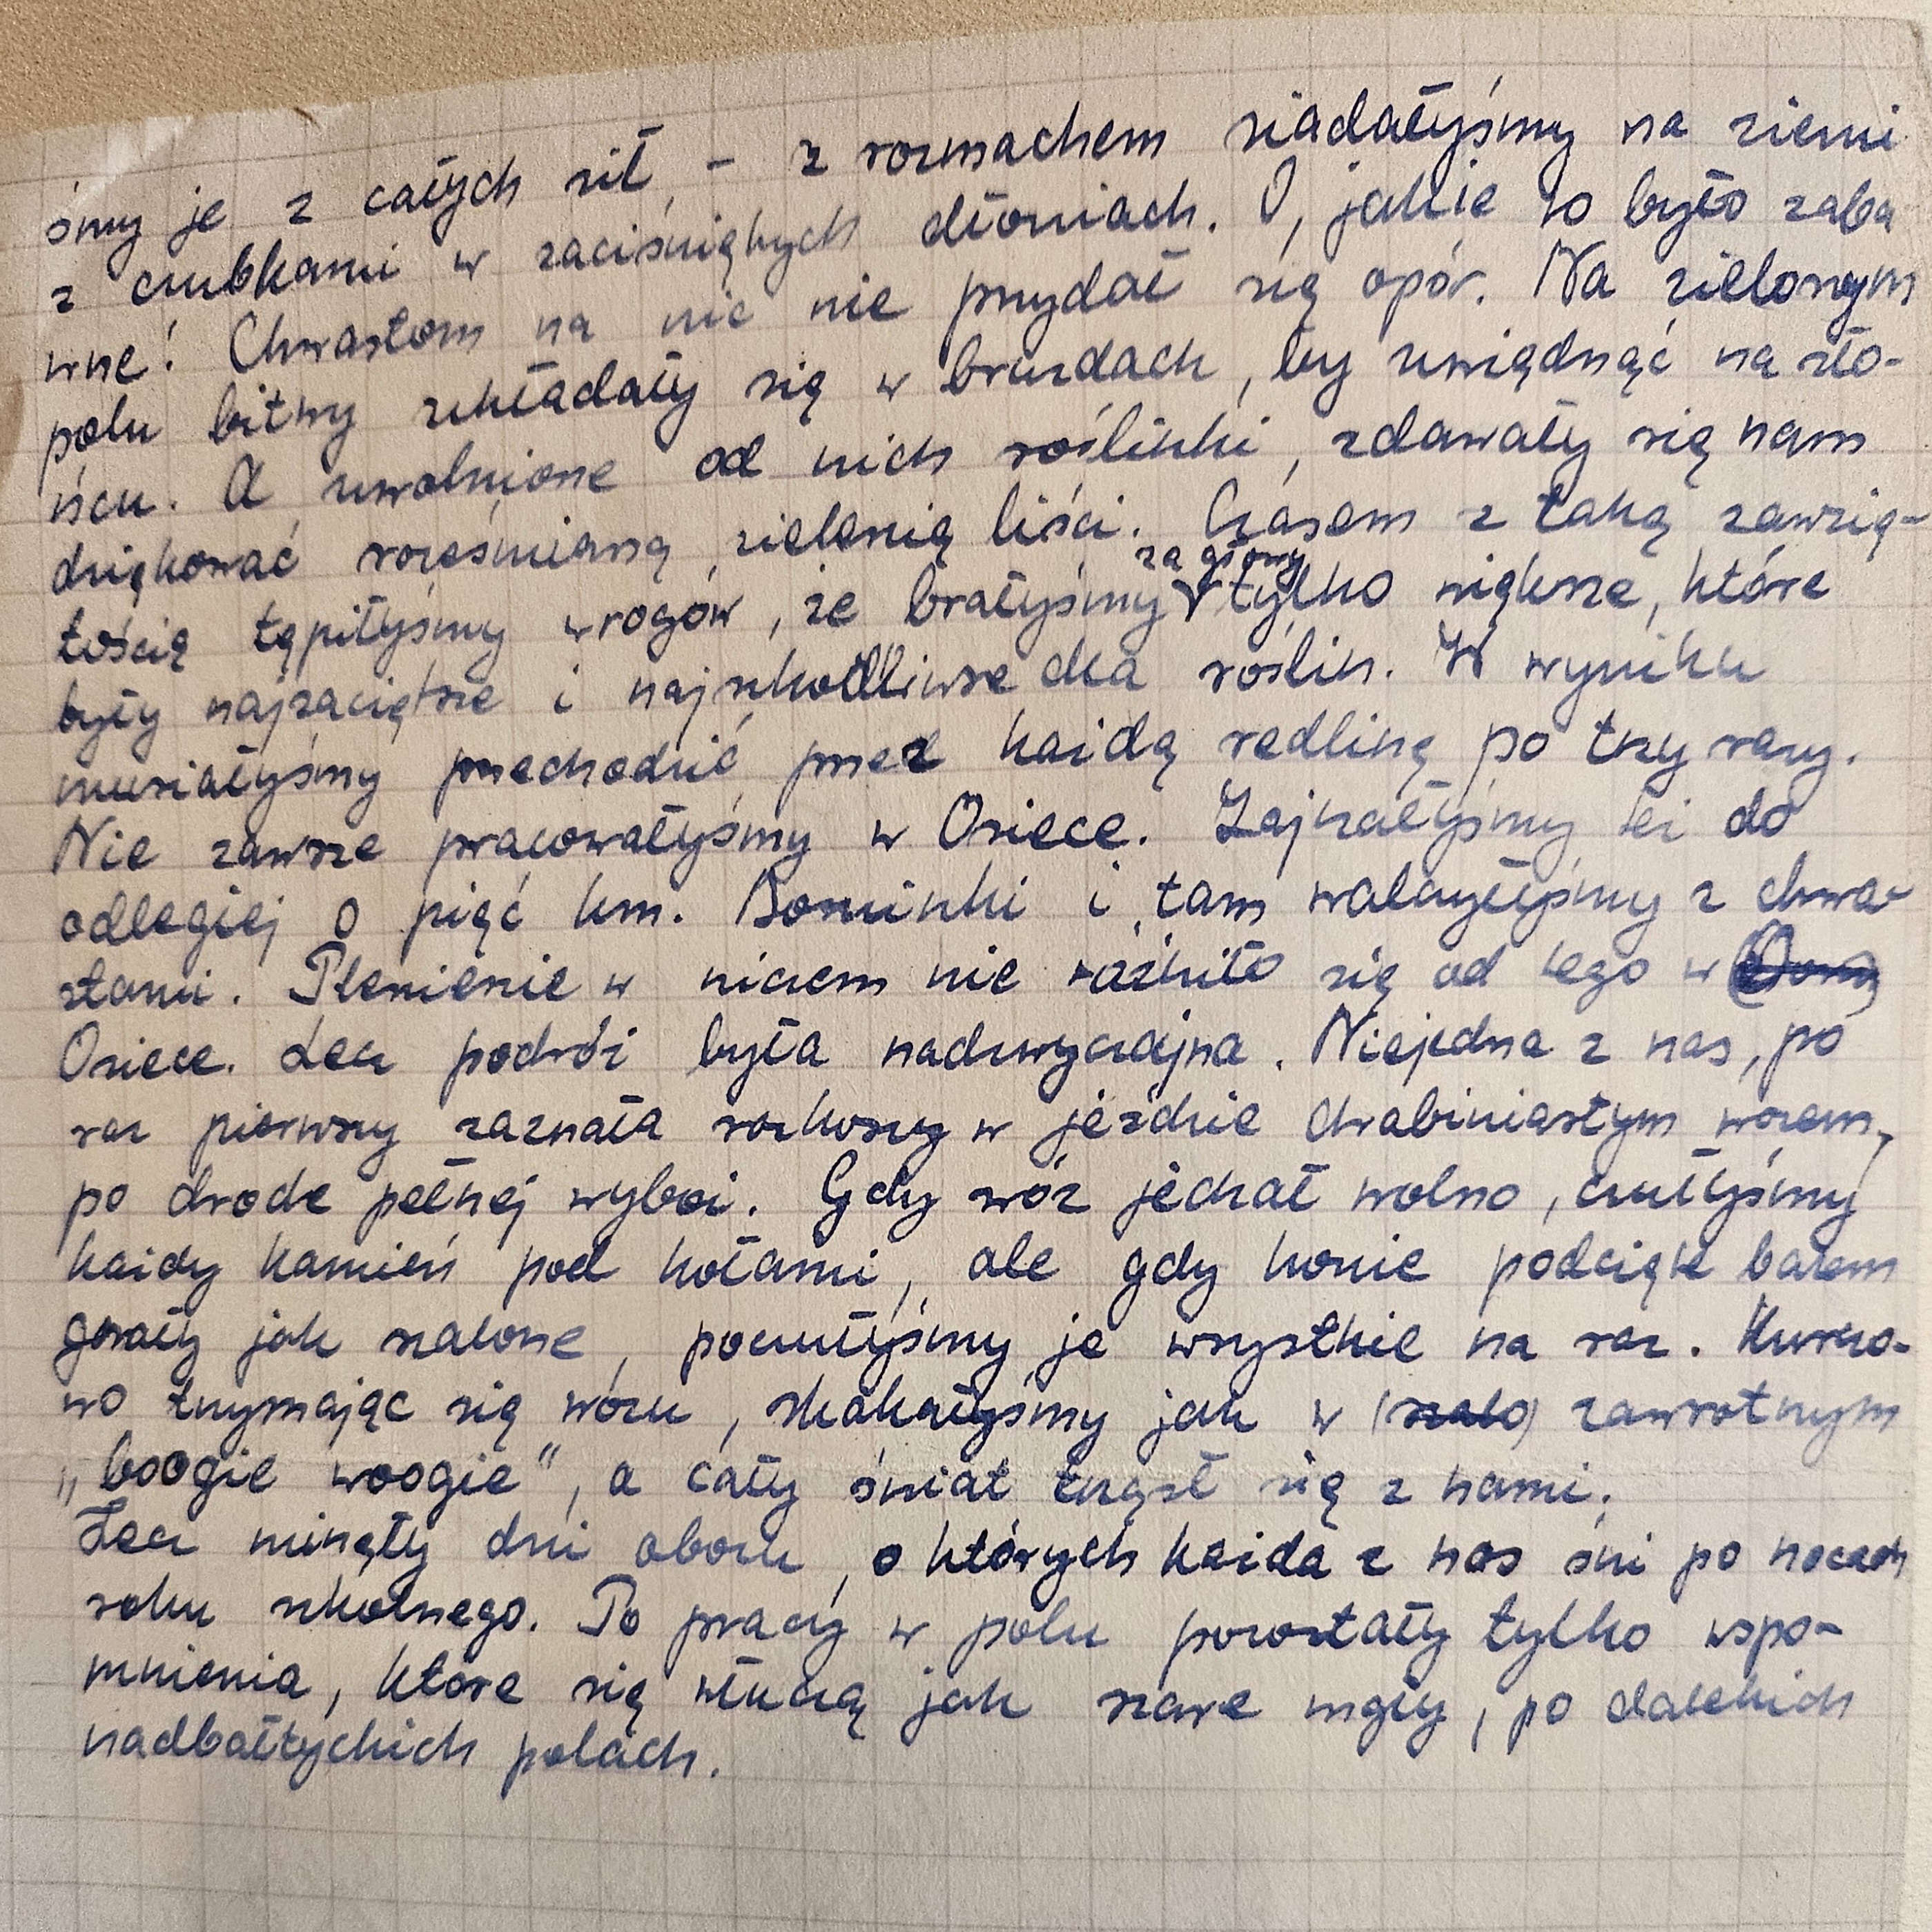 śmy je z całych sił, - z rozmachem siadałyśmy na ziemi
z czubkami w zaciśniętych dłoniach. O, jakie to było zaba
wne! Chwastom na nic nie przydał się opór. Na zielonym
polu bitwy układały się w bruzdach, by zwiędnąć na sło-
ńcu. A uwolnione od nich roślinki, zdawały się nam
dziękować roześmianą zielenią liści. Czasem z taką zawzię-
tością tępiłyśmy wrogów, że brałyśmy za głowy tylko większe, które
były najzaciętsze i najszkodliwsze dla roślin. W wyniku
musiałyśmy przechodzić przez każdą redlinę po trzy razy.
Nie zawsze pracowałyśmy w Osiece. Zajrzałyśmy też do
odległej o pięć km. Borninki i tam walczyłyśmy z chwa-
stami. Plenienie w niczem nie różniło się od tego w
Osiece. Lecz podróż była nadzwyczajna. Niejedna z nas, po
raz pierwszy zaznała rozkoszy w jeździe drabiniastym wozem,
po drodze pełnej wyboi. Gdy wóz jechał wolno, czułyśmy
każdy kamień pod kołami, ale gdy konie podcięte batem
gnały jak szalone, poczułyśmy je wszystkie na raz. Kurczo-
wo trzymając się wózu, skakałyśmy jak w (szalo) zawrotnym
„boogie woogie", a cały świat trząsł się z nami.
Lecz minęły dni obozu, o których każda z nas śni po nocach
roku szkolnego. Po pracy w polu pozostały tylko wspo-
mnienia, które się włóczą jak szare mgły, po dalekich
nadbałtyckich polach.